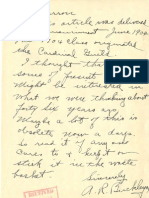 this article was delivered
Commencement June 1904
1904 class originated
the Cardinal Guild.
I thought the
some of present
might be interested in
what we were thinking about
forty six years ago
Maybe a lot of this is
obsolete now a days.
So read it if any one
cares to & keep or
stick it in the waste
basket.
Sincerely
A.R. Buckley